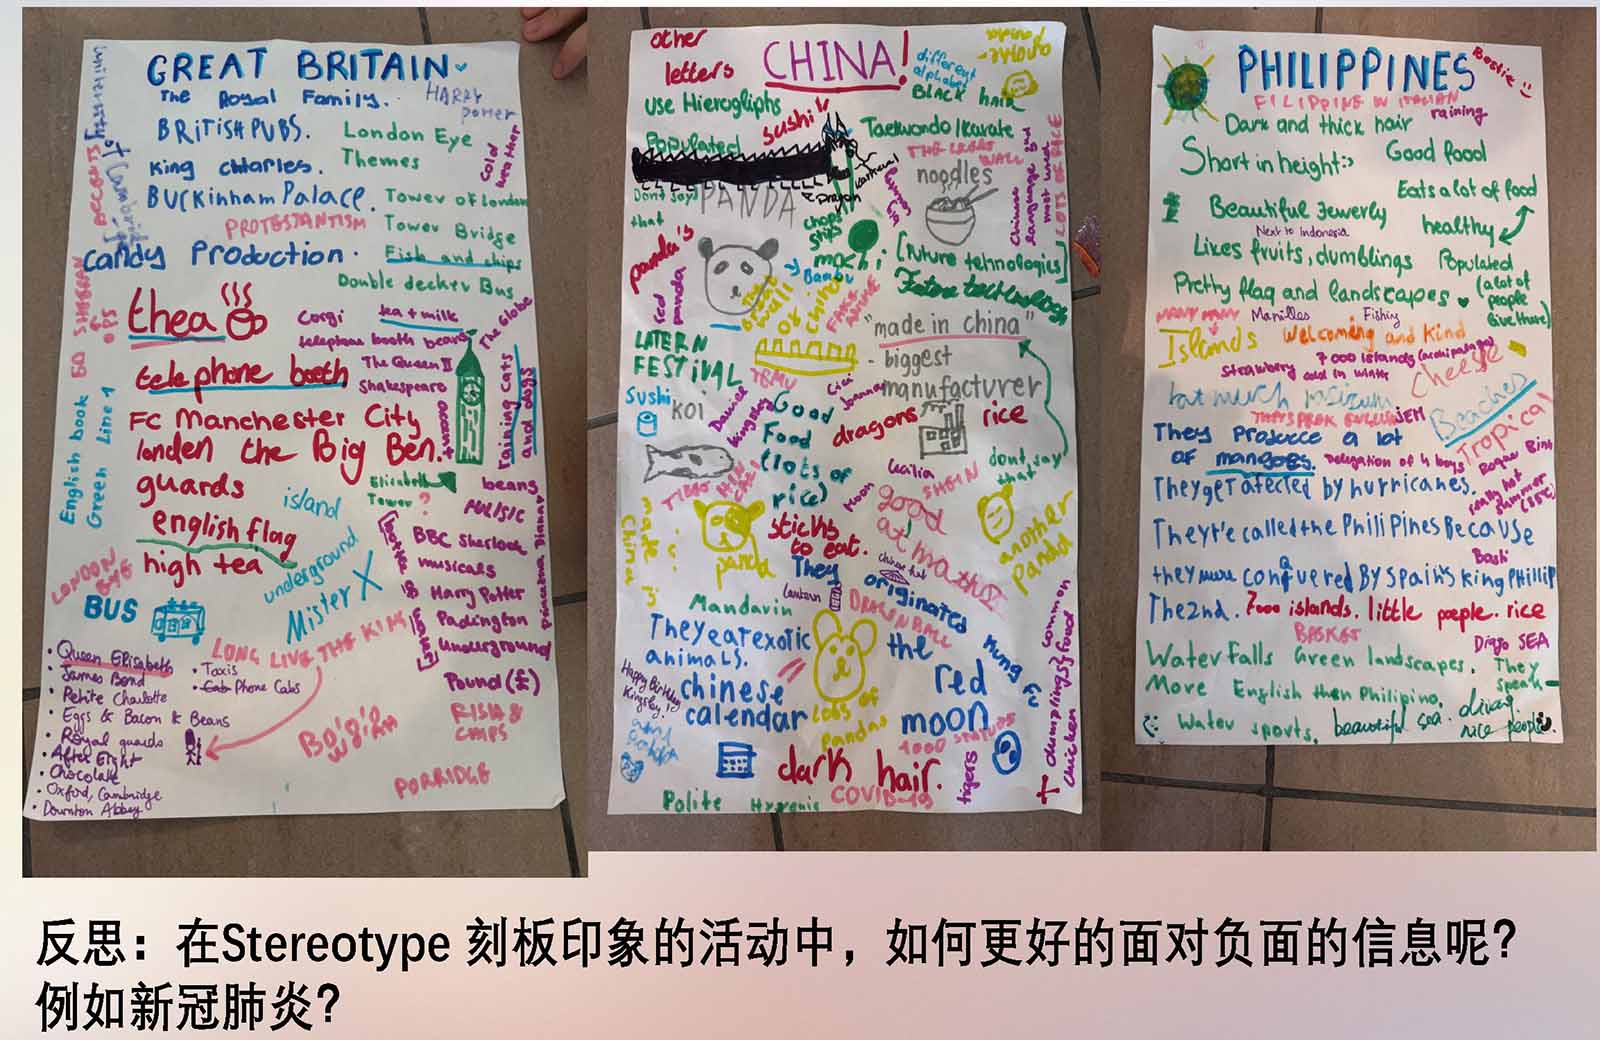 GREAT BRITAIN
The Royal Family.
HARRY Potter
BRITISH PUBS.
London Eye
King Charles.
Themes
cold weather
ACCENTS
BUCKinHam Palace.
Tower of London
PROTESTANTISM
Tower Bridge
Candy Production.
Fish and chips
Double decker Bus
ED SHEERAN
thea
Corgi
tea + milk
The Globe
telephone booth
The Queen II
Shakespeare
raining cats and dogs
FC Manchester City
londen the Big Ben.
guards
Elizabeth Tower ?
beans
island
MUSIC
english flag
BBC Sherlock
musicals
high tea
underground
Princess Dianna
English book
Green Line 1
LONDON EYE
BUS
Mister X
Harry Potter
Padington
underground
LONG LIVE THE KING
• Queen Elisabeth
• James Bond
• Petite Charlotte
• Eggs & Bacon & Beans
• Royal guards
• After Eight
• Chocolate
• Oxford, Cambridge
• Downton Abbey
• Taxis
• Cab Phone Cabs
Pound (£)
PORRIDGE
CHINA!
other letters
different alphabet
BLACK hair
use Hierogliphs
sushi
Populated
Taekwondo/karate
THE GREAT WALL
noodles
Dragon
Dont say that
PANDA
chop sticks
LOTS OF PEOPLE
panda's
red panda
mochi
Bambu
[future tehnologies]
Future technology
The great wall of china
"made in china"
- biggest manufacturer
LATERN FESTIVAL
TEMU
Sushi
KOI
Daniel Kingsley
Good Food (lots of rice)
Cici
Joanna
dragons
rice
Cecilia
SHEIN
dont say that
Moon
good at maths
made in China
panda
sticks to eat.
another Panda
Chinese hat
Mandarin
Lantern
DRAGON BALL
They originated the red moon
They eat exotic animals.
kung fu
common
dumplings food
chicken
Happy Birthday Kingsley!
chinese calendar
Lots of pandas
tigers
dark hair.
COVID-19
Polite
Hygenic
PHILIPPINES
Bestie :)
FILIPPINE IN ITALIAN
raining
Dark and thick hair
Short in height:>
Good food
Eats a lot of food
healthy
Beautiful Jewerly
Next to Indonesia
Likes fruits, dumblings
Populated (a lot of people live there)
Pretty flag and landscapes
MANY MANY
Manilles
Fishing
Islands
Welcoming and Kind
7 000 islands (archipelago)
strawberry
cold in winter
cheese
Beaches
Tropical
THEY SPEAK ENGLISH
JEM
They produce a lot of mangoes.
Delegation of 4 boys
really hot summer
They get afected by hurricanes.
They're called the Philippines Because
they were conquered By Spain's King Phillip
The 2nd.
7000 islands.
little people.
rice
BASKET
Waterfalls
Green landscapes.
They speak
More English then Philipino.
Water sports.
beautiful sea.
olives.
nice people.
反思：在Stereotype 刻板印象的活动中，如何更好的面对负面的信息呢？
例如新冠肺炎？